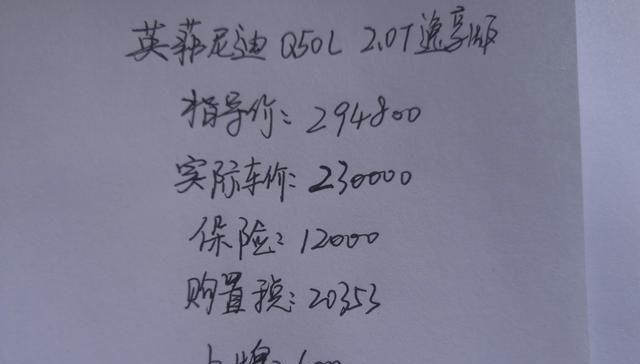 英菲尼迪 Q50L 2.0T逸享版
指导价：294800
实际车价：230000
保险：12000
购置税：20353